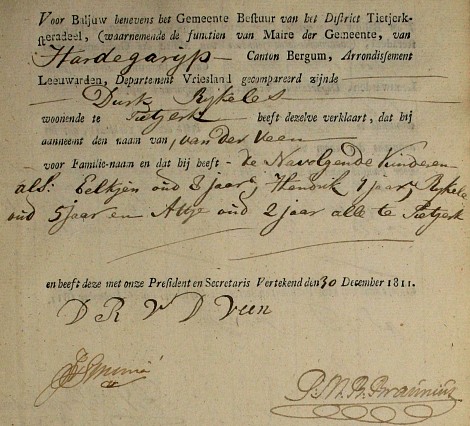 Voor Baljuw benevens het Gemeente Bestuur van het District Tietjerk-
steradeel, (waarnemende de functien van Maire der Gemeente, van
Hardegarijp Canton Bergum, Arrondissement
Leeuwarden, Departement Vriesland gecompareerd zijnde
Durk Rijkeles
woonende te Tietjerk heeft dezelve verklaart, dat hij
aanneemt den naam van, van der Veen
voor Familie-naam en dat hij heeft - de Navolgende Kinderen
als: Eeltjen oud 8 jaar, Hendrik 7 jaar, Rijkele
oud 5 jaar en Attje oud 2 jaar alle te Tietjerk
en heeft deze met onze President en Secretaris Vertekend den 30 December 1811.
D R V D Veen
P. M. B. Braunius